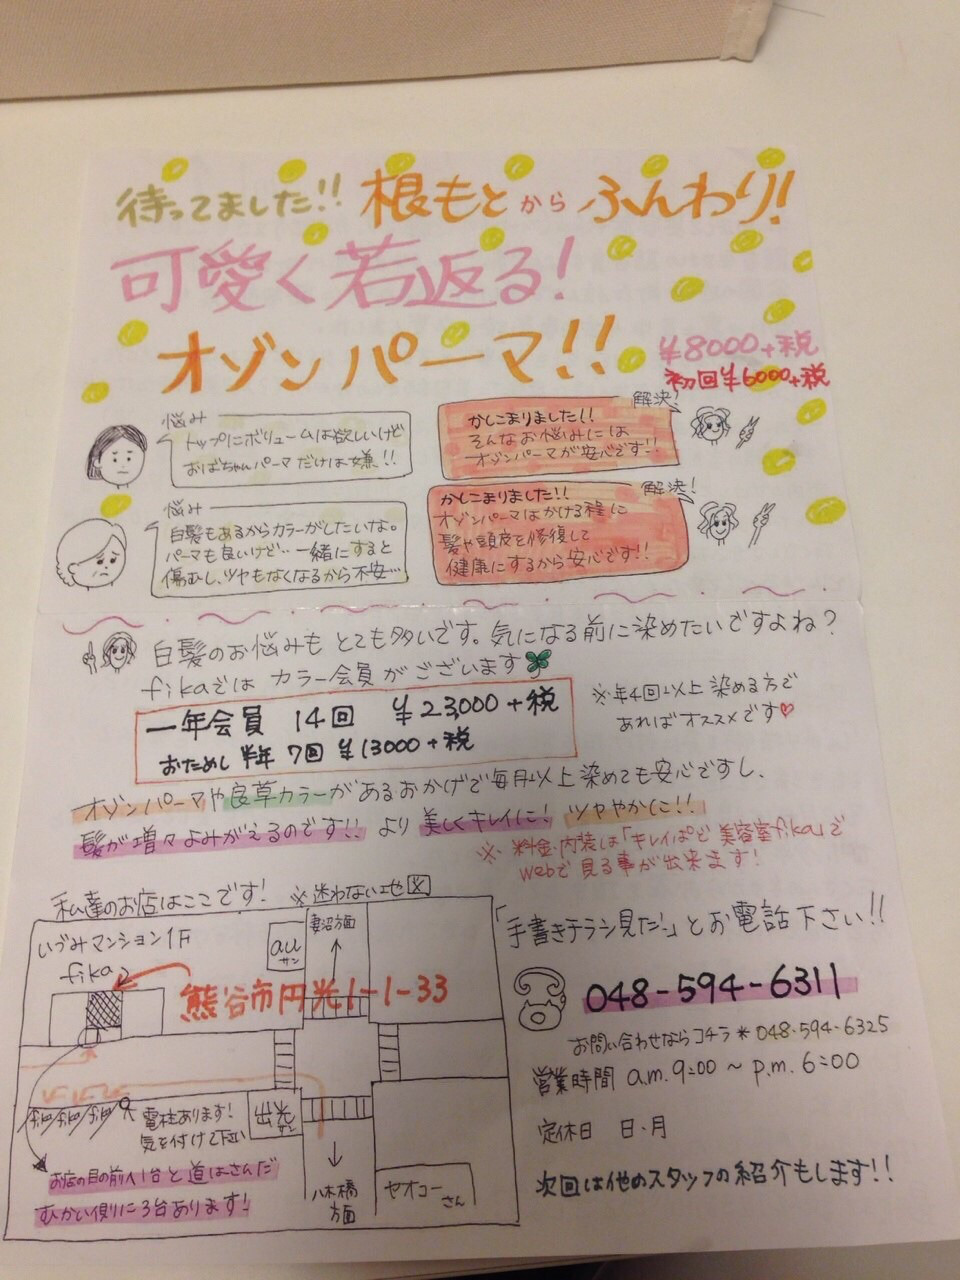 待ってました!! 根もとからふんわり!
可愛く若返る!
オゾンパーマ!!
¥8000+税
初回¥6000+税
悩み
トップにボリュームは欲しいけど
おばちゃんパーマだけは嫌!!
解決!
かしこまりました!!
そんなお悩みには
オゾンパーマが安心です!!
悩み
白髪もあるからカラーがしたいな。
パーマも良いけど…一緒にすると
傷むし、ツヤもなくなるから不安…
解決!
かしこまりました!!
オゾンパーマはかける程に
髪や頭皮を修復して
健康にするから安心です!!
白髪のお悩みもとても多いです。気になる前に染めたいですよね?
fikaではカラー会員がございます
一年会員 14回 ¥23,000+税
おためし半年 7回 ¥13000+税
※年4回以上染める方で
あればオススメです♡
オゾンパーマや良草カラーがあるおかげで毎月以上染めても安心ですし、
髪が増々よみがえるのです!! より美しくキレイに! ツややかに!!
※料金・内装は「キレイぱど 美容室fika」で
webで見る事が出来ます!
私達のお店はここです! ※迷わない地図
いづみマンション1F
fika
auサン
妻沼方面
熊谷市円光1-1-33
電柱あります!
気を付けて下さい
出光サン
お店の目の前へ1台と道はさんだ
むかい側りに3台あります!
八木橋
方面
ヤオコーさん
「手書きチラシ見た〜」とお電話下さい!!
048-594-6311
お問い合わせならコチラ＊048-594-6325
営業時間 a.m.9:00〜p.m.6:00
定休日 日・月
次回は他のスタッフの紹介もします!!